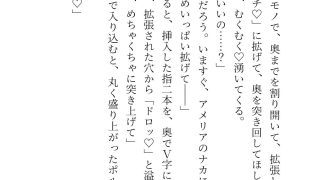 モノで、奥までを割り開いて、拡張し
チ♡」に拡げて、奥を突き回してほし
、むくむく♡湧いてくる。
いいの……？」
だろう。いますぐ、アメリアのナカに
めいっぱい拡げて――」
ると、挿入した指二本を、奥でＶ字に
拡張された穴から「ドロッ♡」と溢
、めちゃくちゃに突き上げて」
で入り込むと、丸く盛り上がったポル
♡」